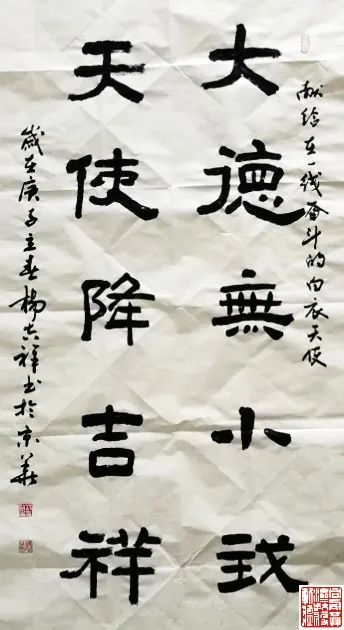 献给在一线奋斗的白衣天使
大德無小我
天使降吉祥
歲在庚子立春楊祥书於京華